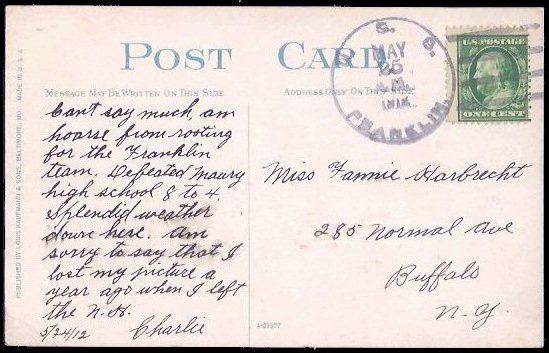 POST CARD
MESSAGE MAY BE WRITTEN ON THIS SIDE
ADDRESS ONLY ON THIS SIDE
Can't say much, am
hoarse from rooting
for the Franklin
team. Defeated Maury
high school 8 to 4.
Splendid weather
down here. am
sorry to say that I
lost my picture a
year ago when I left
the N.H.
5/24/12 Charlie
PUBLISHED BY LOUIS KAUFMANN & SONS, BALTIMORE, MD. MADE IN U.S.A.
A-23377
U. S. S.
MAY
25
A.M.
1912
FRANKLIN.
U.S. POSTAGE
ONE CENT
Miss Fannie Harbrecht
285 Normal Ave
Buffalo
N.Y.